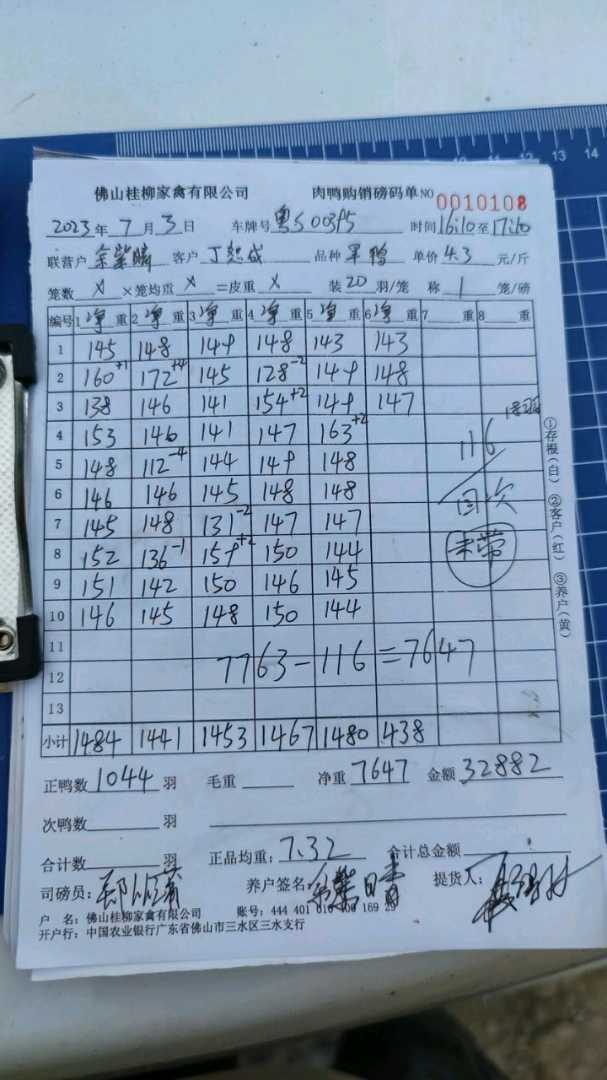 佛山桂柳家禽有限公司 肉鸭购销磅码单 NO 0010108
2023年 7月 3日 车牌号 粤S003f5 时间 16:10 至 17:10
联营户 余紫晴 客户 丁 品种 旱鸭 单价 4.3 元/斤
笼数 x ×笼均重 x =皮重 x 装 20 羽/笼 称 1 笼/磅
编号 1 净重 2 净重 3 净重 4 净重 5 净重 6 净重 7 重 8 重
1 145 148 149 148 143 143
2 160+1 172+4 145 128-2 149 148
3 138 146 141 154+2 149 147
4 153 146 141 147 163+2
5 148 112-4 144 149 148
6 146 146 145 148 148
7 145 148 131-2 147 147
8 152 136-1 159+2 150 144
9 151 142 150 146 145
10 146 145 148 150 144
11
12
13
7763-116=7647
小计 1484 1441 1453 1467 1480 438
116
回次
未带
①存根(白) ②客户(红) ③养户(黄)
正鸭数 1044 羽 毛重 净重 7647 金额 32882
次鸭数 羽
合计数 羽 正品均重: 7.32 合计总金额
司磅员: 养户签名: 余紫晴 提货人:
户 名: 佛山桂柳家禽有限公司 账号: 444 401 010 400 169 29
开户行: 中国农业银行广东省佛山市三水区三水支行